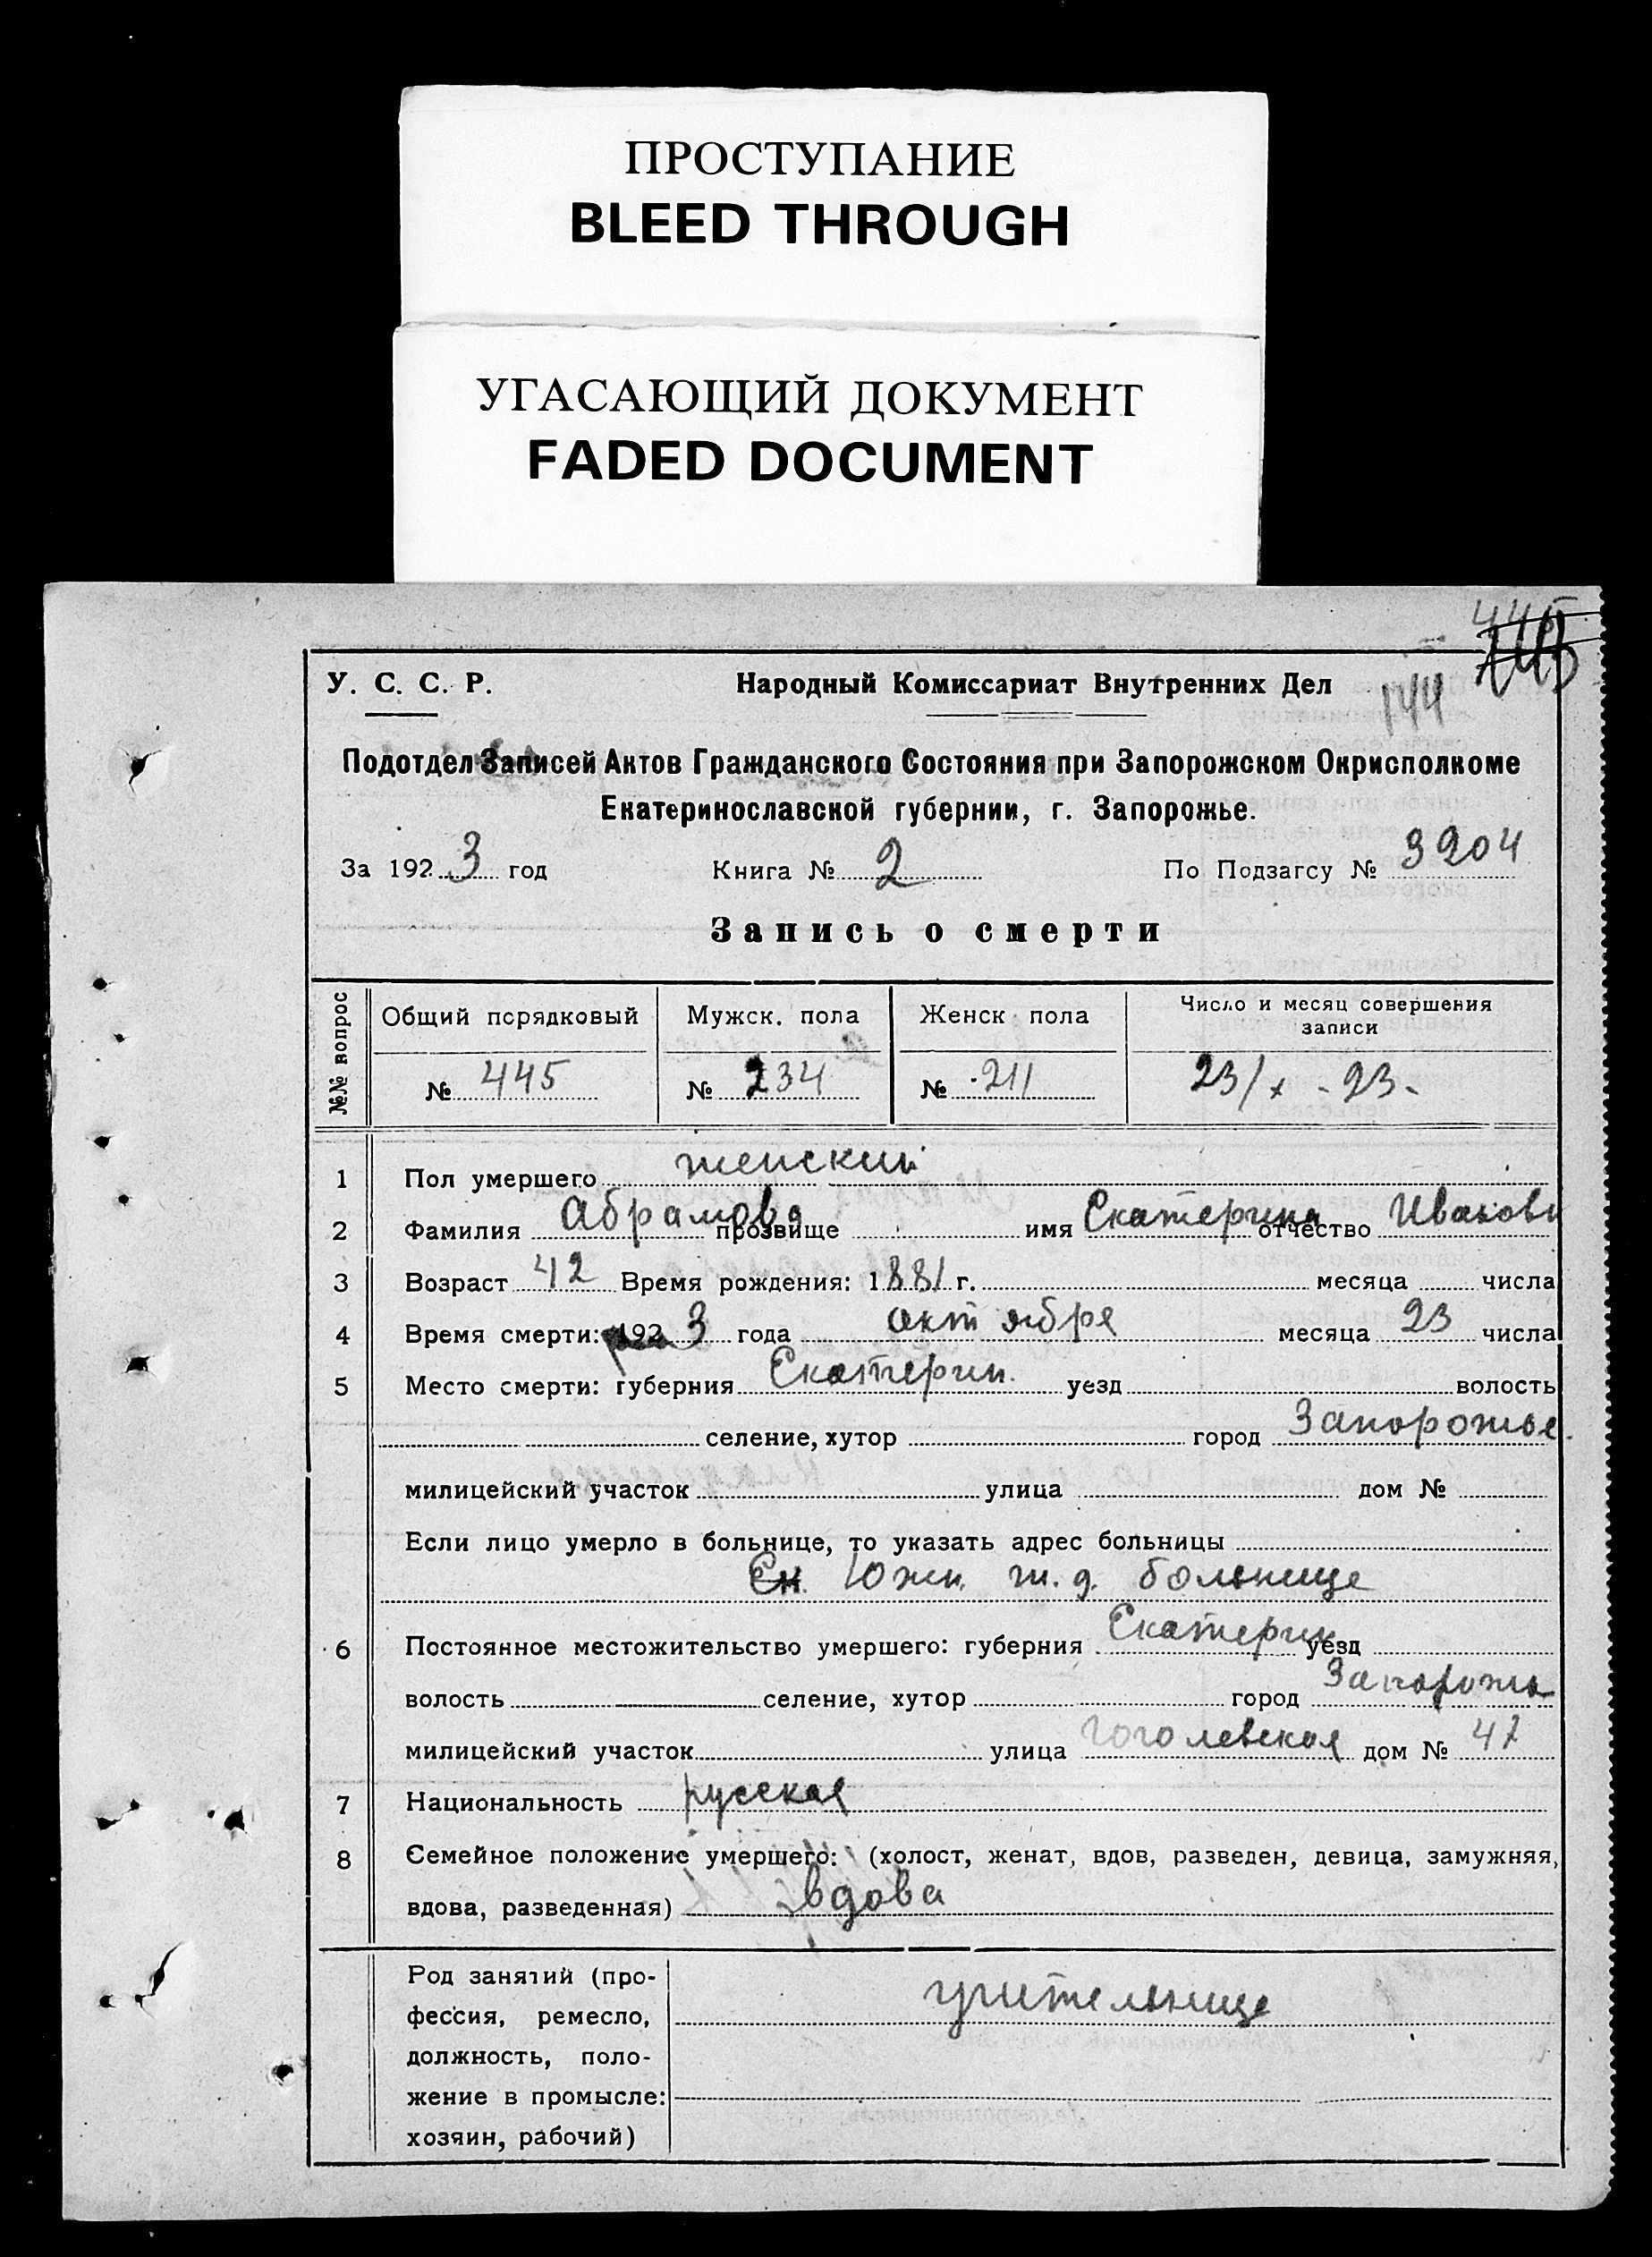 ПРОСТУПАНИЕ
BLEED THROUGH
УГАСАЮЩИЙ ДОКУМЕНТ
FADED DOCUMENT
445
У. С. С. Р. Народный Комиссариат Внутренних Дел 144
Подотдел Записей Актов Гражданского Состояния при Запорожском Окрисполкоме
Екатеринославской губернии, г. Запорожье.
За 1923 год Книга № 2 По Подзагсу № 3204
Запись о смерти
№№ вопрос Общий порядковый Мужск. пола Женск пола Число и месяц совершения
записи
№ 445 № 234 № 211 23/x - 23 -
1 Пол умершего женский
2 Фамилия Абрамова прозвище имя Екатерина отчество Ивановн
3 Возраст 42 Время рождения: 1881 г. месяца числа
4 Время смерти: 1923 года октября месяца 23 числа
5 Место смерти: губерния Екатерин. уезд волость
селение, хутор город Запорожье.
милицейский участок улица дом №
Если лицо умерло в больнице, то указать адрес больницы
Ек. Южн. ж. д. больнице
6 Постоянное местожительство умершего: губерния Екатерин уезд
волость селение, хутор город Запорожье
милицейский участок улица Гоголевская дом № 47
7 Национальность русская
8 Семейное положение умершего: (холост, женат, вдов, разведен, девица, замужняя,
вдова, разведенная) вдова
Род занятий (про-
фессия, ремесло, учительница
должность, поло-
жение в промысле:
хозяин, рабочий)